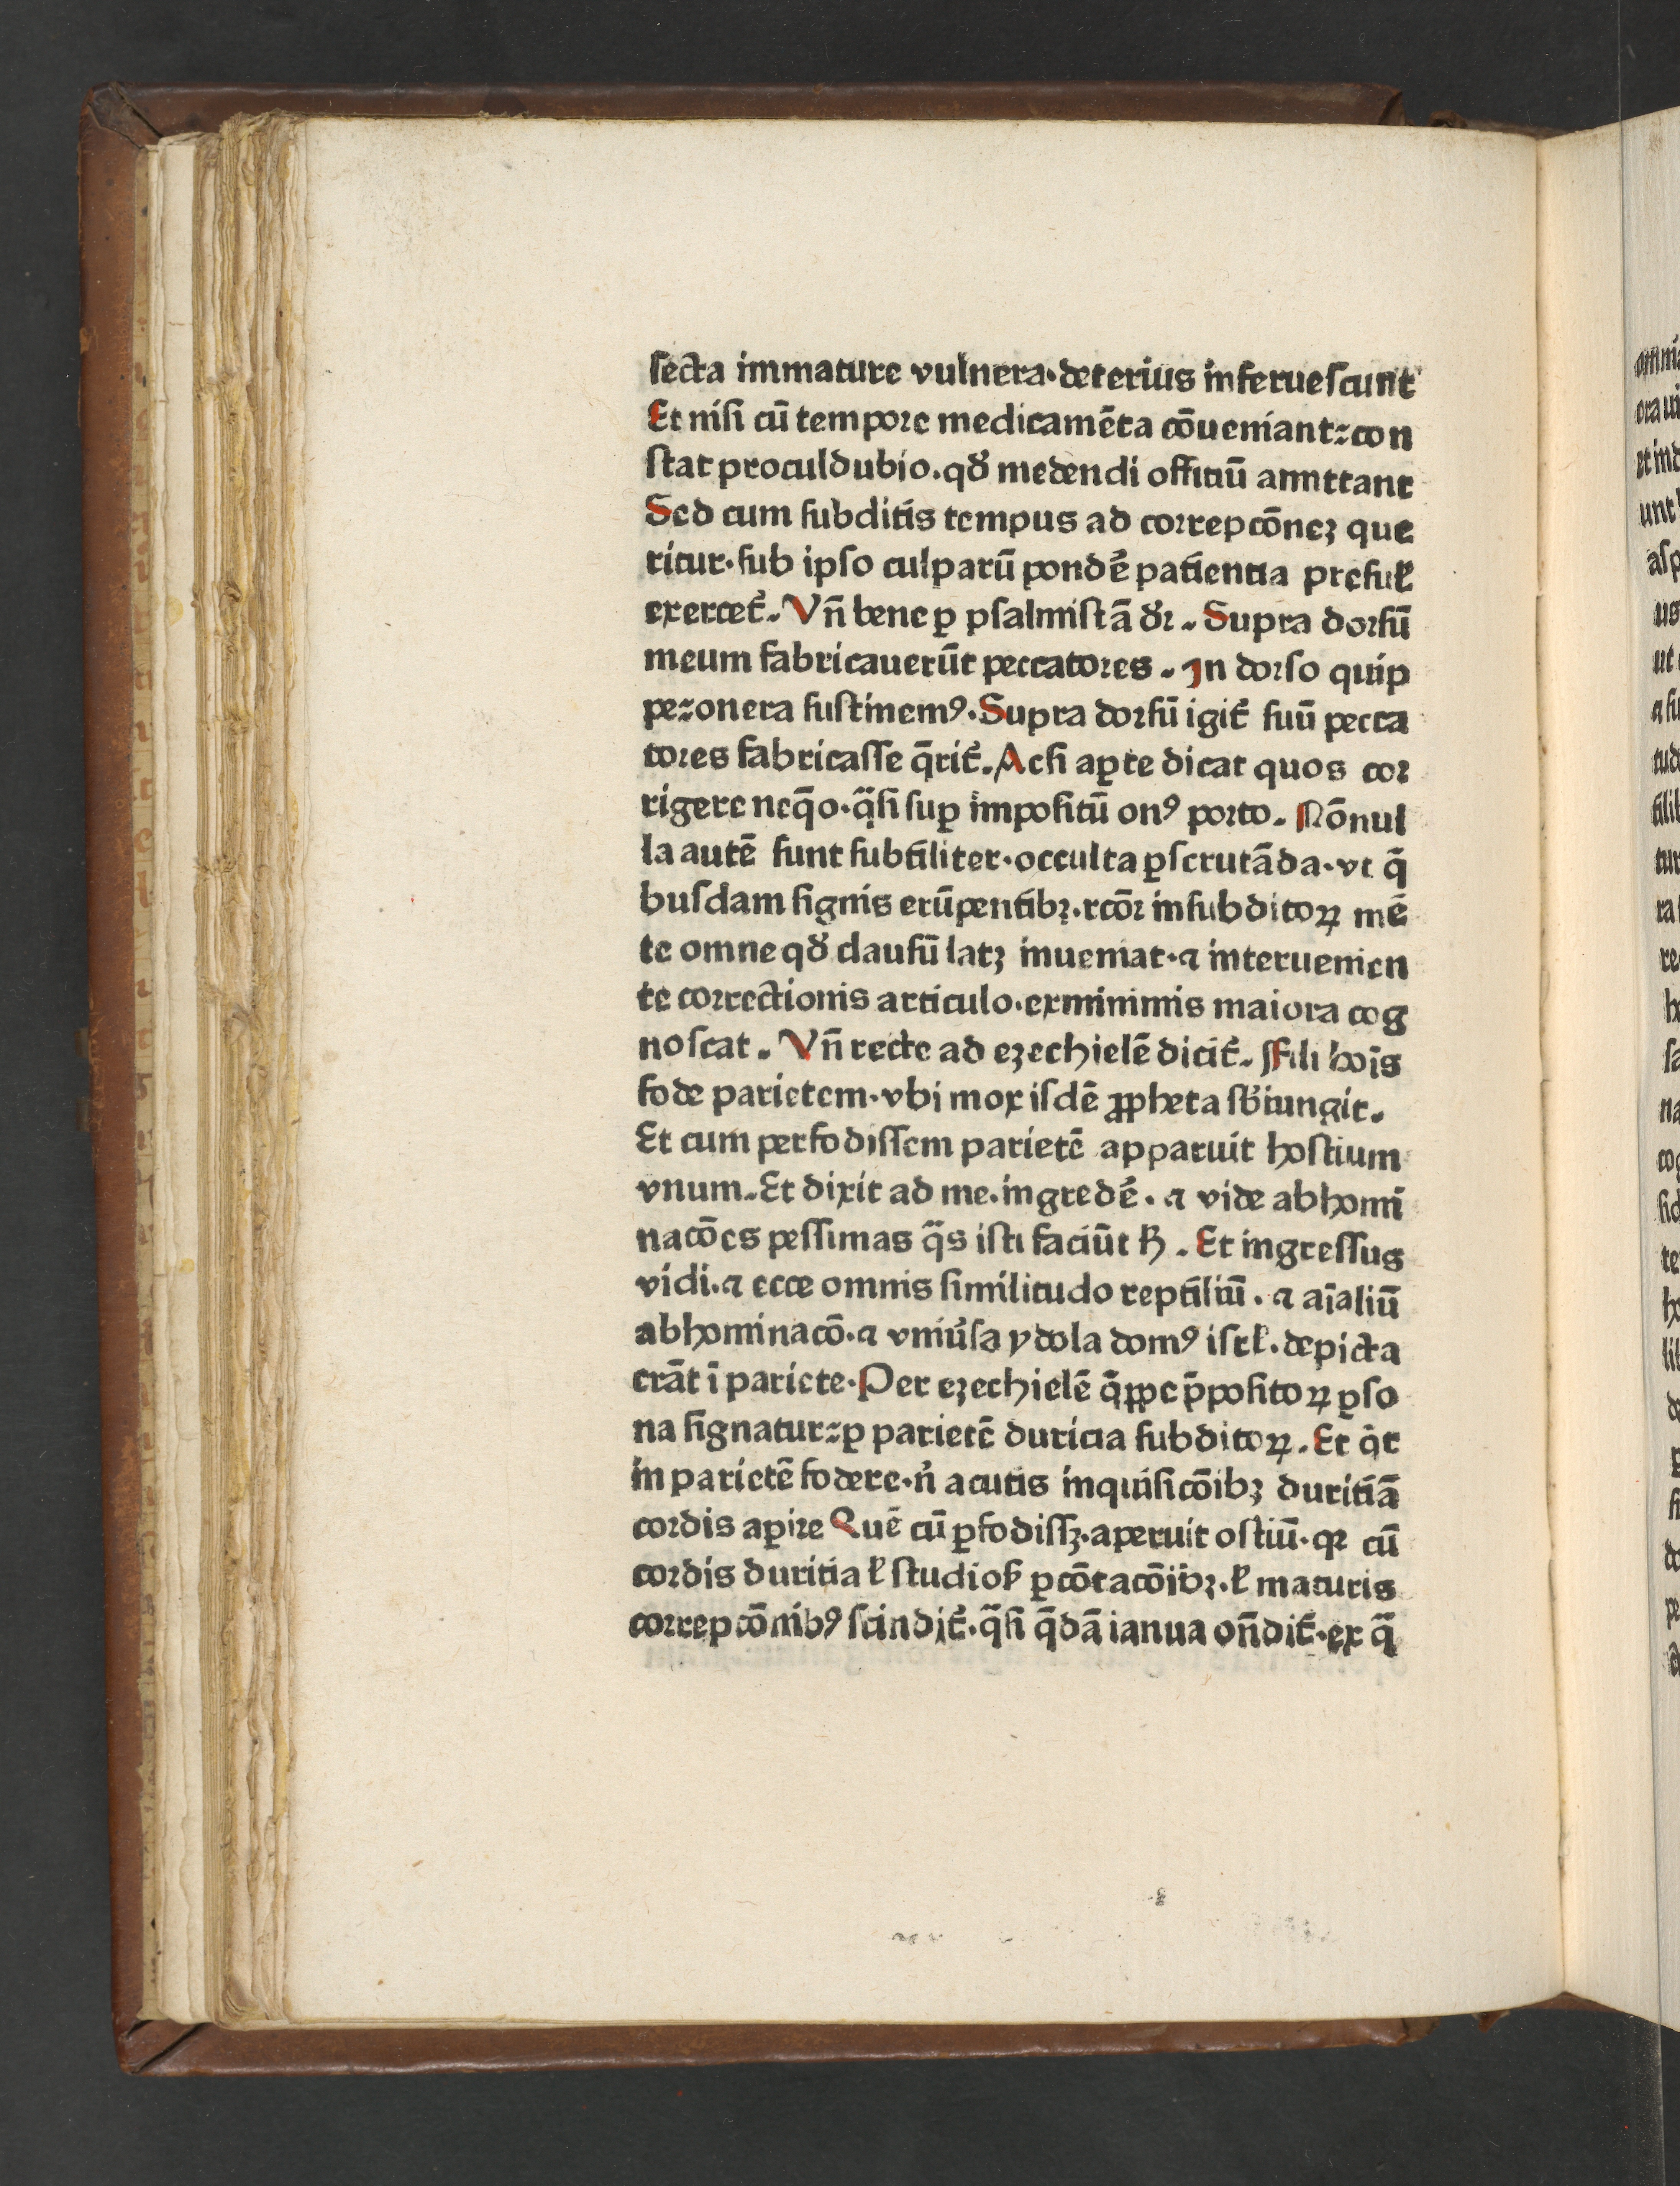 secta immature vulnera·deterius inferuescunt
Et nisi cū tempore medicamēta cōueniant:con
stat proculdubio.qđ medendi officiū amittant
Sed cum subditis tempus ad correpcōneꝫ que
ritur·sub ipso culparū pondē patientia presuł
exercet᷑. Vn̄ bene ꝑ psalmistā đr. Supra dorsū
meum fabricauerūt peccatores. In dorso quip
pe:onera sustinemꝰ.Supra dorsū igit᷑ suū pecca
tores fabricasse q̄rit᷑.Acsi aꝑte dicat quos cor
rigere neq̄o·q̄si suꝑ impositū onꝰ porto. Nōnul
la autē sunt subtiliter·occulta ꝑscrutāda·vt q̄
busdam signis erūpentibꝫ.rcōr insubditoꝝ mē
te omne qđ clausū latꝫ inueniat·⁊ interuenien
te correctionis articulo·exminimis maiora cog
noscat. Vn̄ recte ad ezechielē dicit᷑. Fili hoīs
fode parietem·vbi mox isdē ꝓpheta sb̄iungit.
Et cum perfodissem parietē apparuit hostium
vnum.Et dixit ad me.ingredē. ⁊ vide abhomi
nacōes pessimas q̄s isti faciūt ħ. Et ingressus
vidi.⁊ ecce omnis similitudo reptiliū. ⁊ aīaliū
abhominacō.⁊ vniu̓sa ydola domꝰ isrł.depicta
erāt ī pariete.Per ezechielē q̄ꝓpe p̄positoꝝ ꝑso
na signatur:ꝑ parietē duricia subditoꝝ. Et q̇t
in parietē fodere·n̓ acutis inquisicōibꝫ duritiā
cordis aꝑire Quē cū ꝑfodissꝫ·aperuit ostiū·qꝛ cū
cordis duritia ł studioẜ ꝑcōtacōībꝫ.ł maturis
correpcōnibꝰ scindit᷑.q̄si q̄dā ianua on̄dit᷑·ex q̄